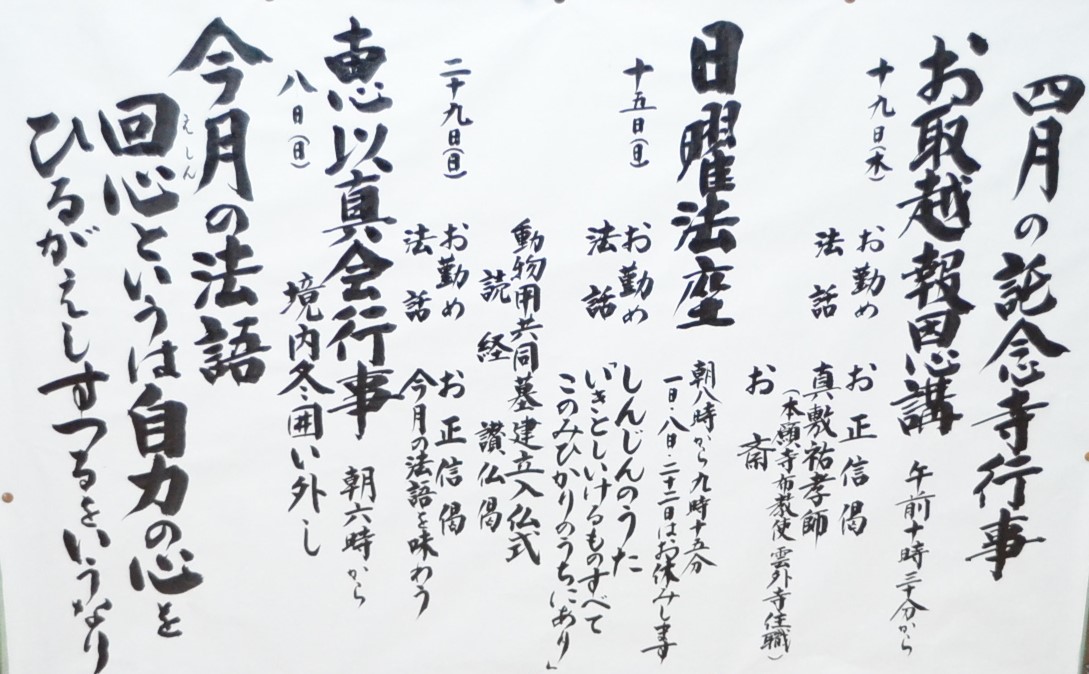 四月の託念寺行事
お取越報恩講 午前十時三十分から
十九日(木) お勤め お正信偈
法話 真敷祐孝師
(本願寺布教使 雲外寺住職)
お斎
日曜法座 朝八時から九時十五分
一日・八日・二十二日はお休みします
十五日(日) お勤め しんじんのうた
法話 「いきとしいけるものすべて
このみひかりのうちにあり」
動物用共同墓建立入仏式
読経 讃仏偈
二十九日(日) お勤め お正信偈
法話 今月の法語を味わう
恵以真会行事 朝六時から
八日(日) 境内冬囲い外し
今月の法語
えしん
回心というは自力の心を
ひるがえしすつるをいうなり